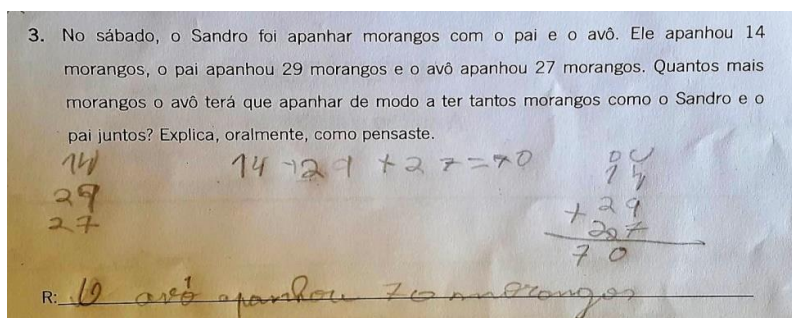 3. No sábado, o Sandro foi apanhar morangos com o pai e o avô. Ele apanhou 14
morangos, o pai apanhou 29 morangos e o avô apanhou 27 morangos. Quantos mais
morangos o avô terá que apanhar de modo a ter tantos morangos como o Sandro e o
pai juntos? Explica, oralmente, como pensaste.
14
29
27
14 + 29 + 27 = 70
DU
14
+ 29
27
70
R: O avô apanhou 70 morangos